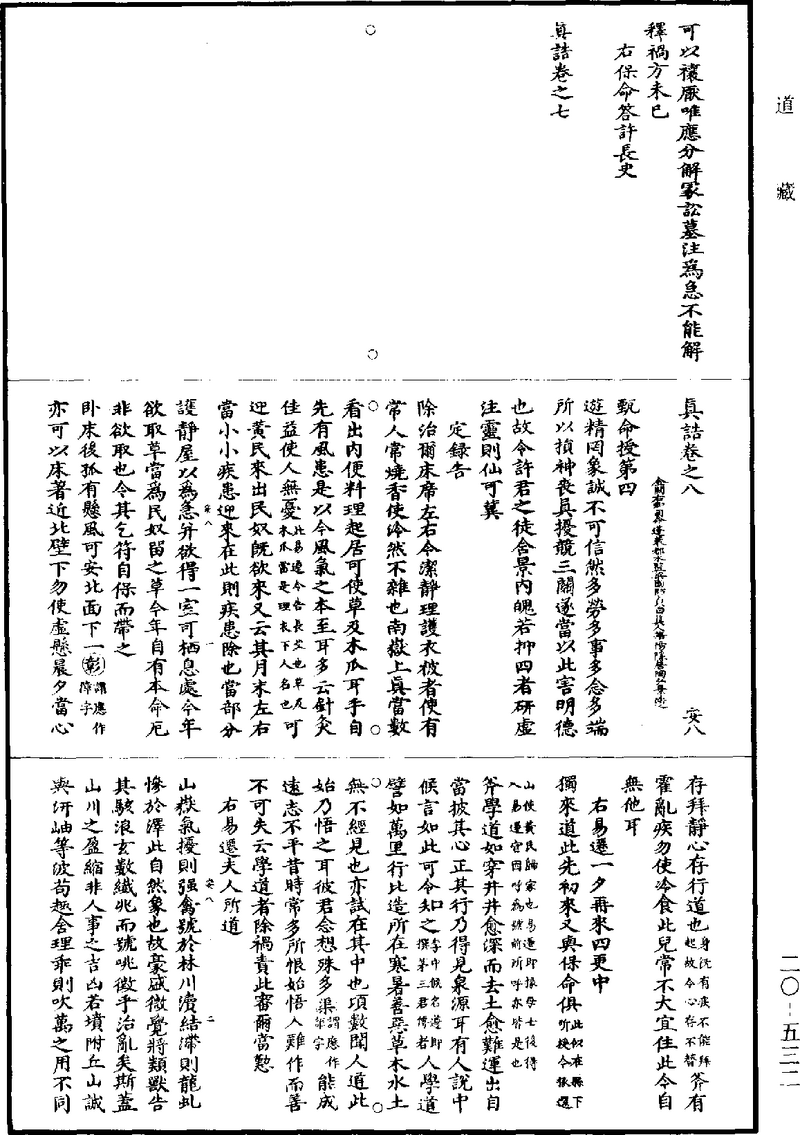 道藏
可以禳厭唯應分解冢訟墓注爲急不能解
釋禍方未已
右保命答許長史
眞誥卷之七
眞誥卷之八
安八
甄命授第四
遊精罔象誠不可信然多勞多事多念多端
所以損神喪眞擾競三關遂當以此害明德
也故令許君之徒含景內魄若抑四者研虛
注靈則仙可冀
定録告
除治爾床席左右令潔靜理護衣被者使有
常人常燒香使泠然不雜也南嶽上眞當數
看出內便料理起居可使草及木瓜耳乎自
先有風患是以今風氣之本至耳多云針灸
佳益使人無憂此易遷令告長史也草及木瓜當是理衣下人名也可
迎黃民來出民奴旣欲來又云其月末左右
當小小疾患迎來在此則疾患除也當部分
護靜屋以爲急并欲得一室可栖息處今年
安八
一
欲取草當爲民奴留之草今年自有本命厄
非欲取也令其乞符自保而帶之
卧床後孤有懸風可安北面下一彰謂應作障字
亦可以床著近北壁下勿使虛懸晨夕當心
存拜靜心存行道也身旣有疾不能拜起故令心存不替斧有
霍亂疾勿使冷食此兒常不大宜住此令自
無他耳
右易遷一夕再來四更中
獨來道此先初來又與保命俱此似在縣下所授令狼還
山使黃民歸家也易遷即掾母亡後得入易遷宮因呼爲號前所呼亦皆是也
斧學道如穿井井愈深而去土愈難運出自
當披其心正其行乃得見泉源耳有人說中
候言如此可令知之李中候名遵即撰茅三君傳者人學道
譬如萬里行比造所在寒暑善惡草木水土
無不經見也亦試在其中也項數聞人道此
始乃悟之耳彼君念想殊多渠謂應作詎字能成
遠志不平昔時常多所恨始悟人難作而善
不可失云學道者除禍責此審爾當懃
右易遷夫人所道
山嶽氣擾則强禽號於林川瀆結滯則龍虬
安八
二
慘於澤此自然象也故豪感微覺將類獸告
其駭浪玄數纖兆而號咷微乎治亂矣斯蓋
山川之盈縮非人事之吉凶若墳附丘山誠
與汧岫等波苟趣舍理乖則吹萬之用不同
二〇-五三二